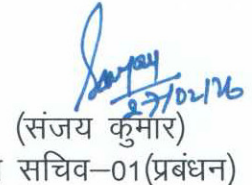 Sanjay
27/02/26
(संजय कुमार)
सचिव–01(प्रबंधन)